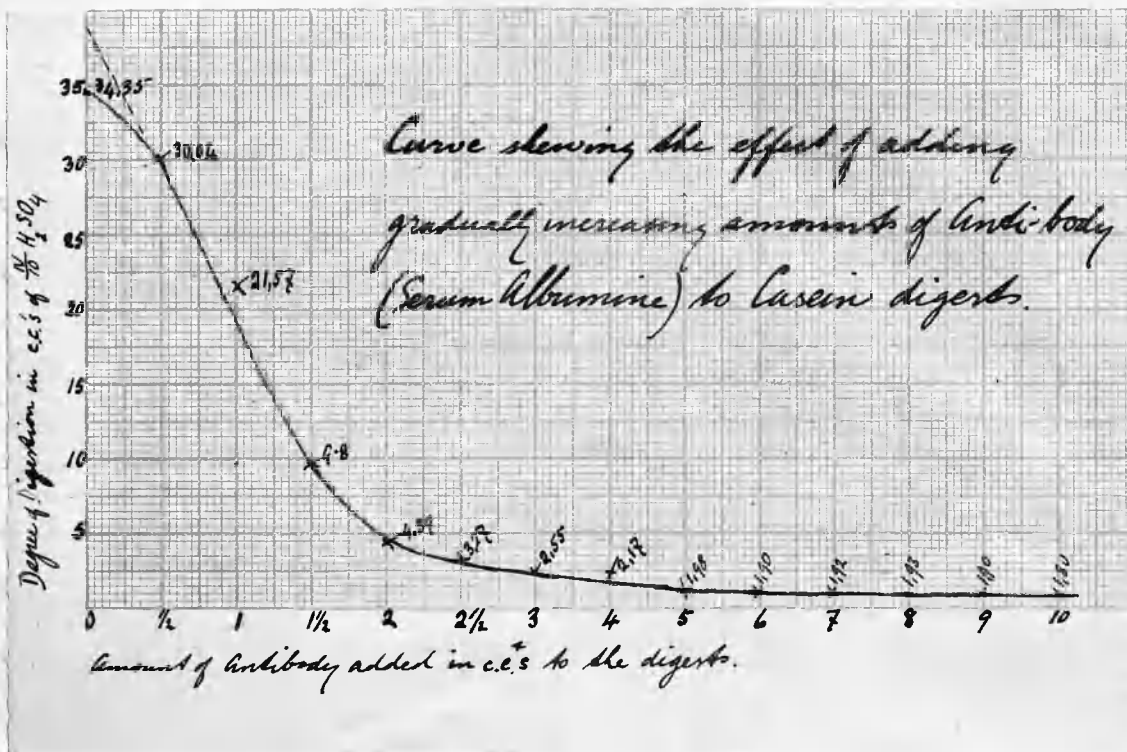 Curve shewing the effect of adding
gradually increasing amounts of Anti-body
(Serum Albumine) to Casein digests.
Degree of Digestion in c.c.s of N/10 H2SO4
35
30
25
20
15
10
5
34,35
30,04
21,57
9.8
4.39
3,17
2,55
2,17
1,98
1,90
1,92
1,93
1,90
1,80
0 ½ 1 1½ 2 2½ 3 4 5 6 7 8 9 10
Amount of Antibody added in c.c.s to the digests.